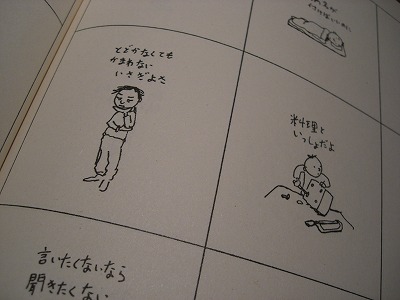 とどかなしても
かまわない
いさぎよさ
料理と
いっしょだよ
言いたくないなら
聞きたくない